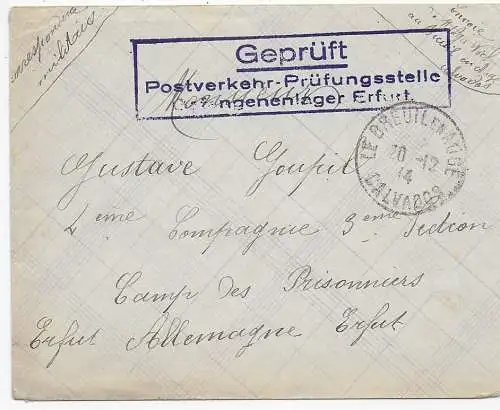 correspondance
militaire
Geprüft
Postverkehr-Prüfungsstelle
Gefangenenlager Erfurt
Monsieur
LE BREUIL EN AUGE
20 -12
14
CALVADOS
Gustave Goupil
2eme Compagnie 3eme Section
Camp des Prisonniers
Erfut Allemagne Erfut